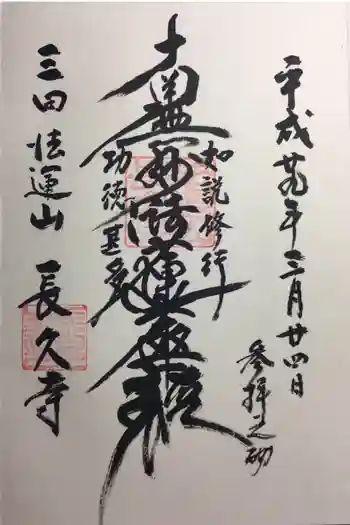 平成廿九年三月廿四日
参拝之砌
如説修行
南無妙法蓮華経
功徳甚多
三田法運山 長久寺